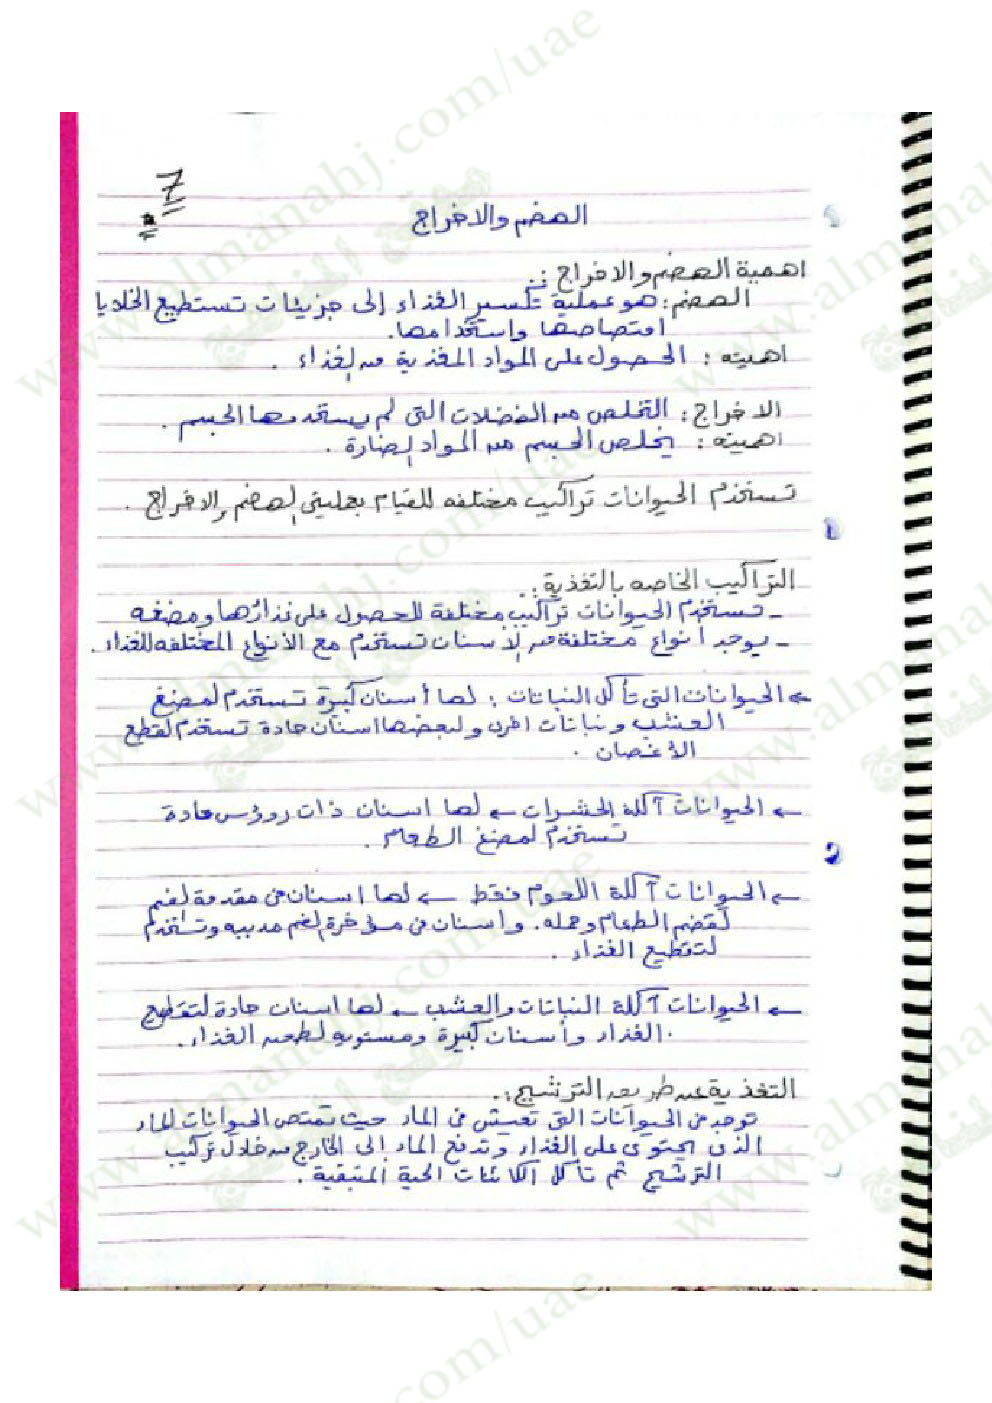 7
الهضم والاخراج
اهمية الهضم والاخراج :.
الهضم: هو عملية تكسير الغذاء إلى جزيئات تستطيع الخلايا
امتصاصها واستخدامها.
اهميته : الحصول على المواد المغذية من الغذاء .
الاخراج : التخلص من الفضلات التي لم يستخدمها الجسم .
اهميته : يخلص الجسم من المواد الضارة .
تستخدم الحيوانات تراكيب مختلفه للقيام بعمليتي الهضم والاخراج .
التراكيب الخاصه بالتغذية :.
- تستخدم الحيوانات تراكيب مختلفة للحصول على غذائها ومضغه
- يوجد انواع مختلفة من الاسنان تستخدم مع الأنواع المختلفه للغذاء .
← الحيوانات التي تأكل النباتات : لها أسنان كبيرة تستخدم لمضغ
العشب ونباتات اخرى ولبعضها اسنان حادة تستخدم لقطع
الأغصان .
← الحيوانات آكلة الحشرات ← لها اسنان ذات رؤوس حادة
تستخدم لمضغ الطعام .
← الحيوانات آكلة اللحوم فقط ← لها اسنان في مقدمة الفم
لقضم الطعام وحمله. واسنان في مؤخرة الفم مدببه وتستخدم
لتقطيع الغذاء .
← الحيوانات آكلة النباتات والعشب ← لها اسنان حادة لتقطيع
الغذاء وأسنان كبيرة ومستويه لطحن الغذاء .
التغذية عن طريق الترشيح :.
توجد في الحيوانات التي تعيش في الماء حيث تمتص الحيوانات الماء
الذي يحتوي على الغذاء وتدفع الماء إلى الخارج من خلال تركيب
الترشيح ثم تأكل الكائنات الحية المتبقية .
www.almanahj.com/uae
موقع المناهج